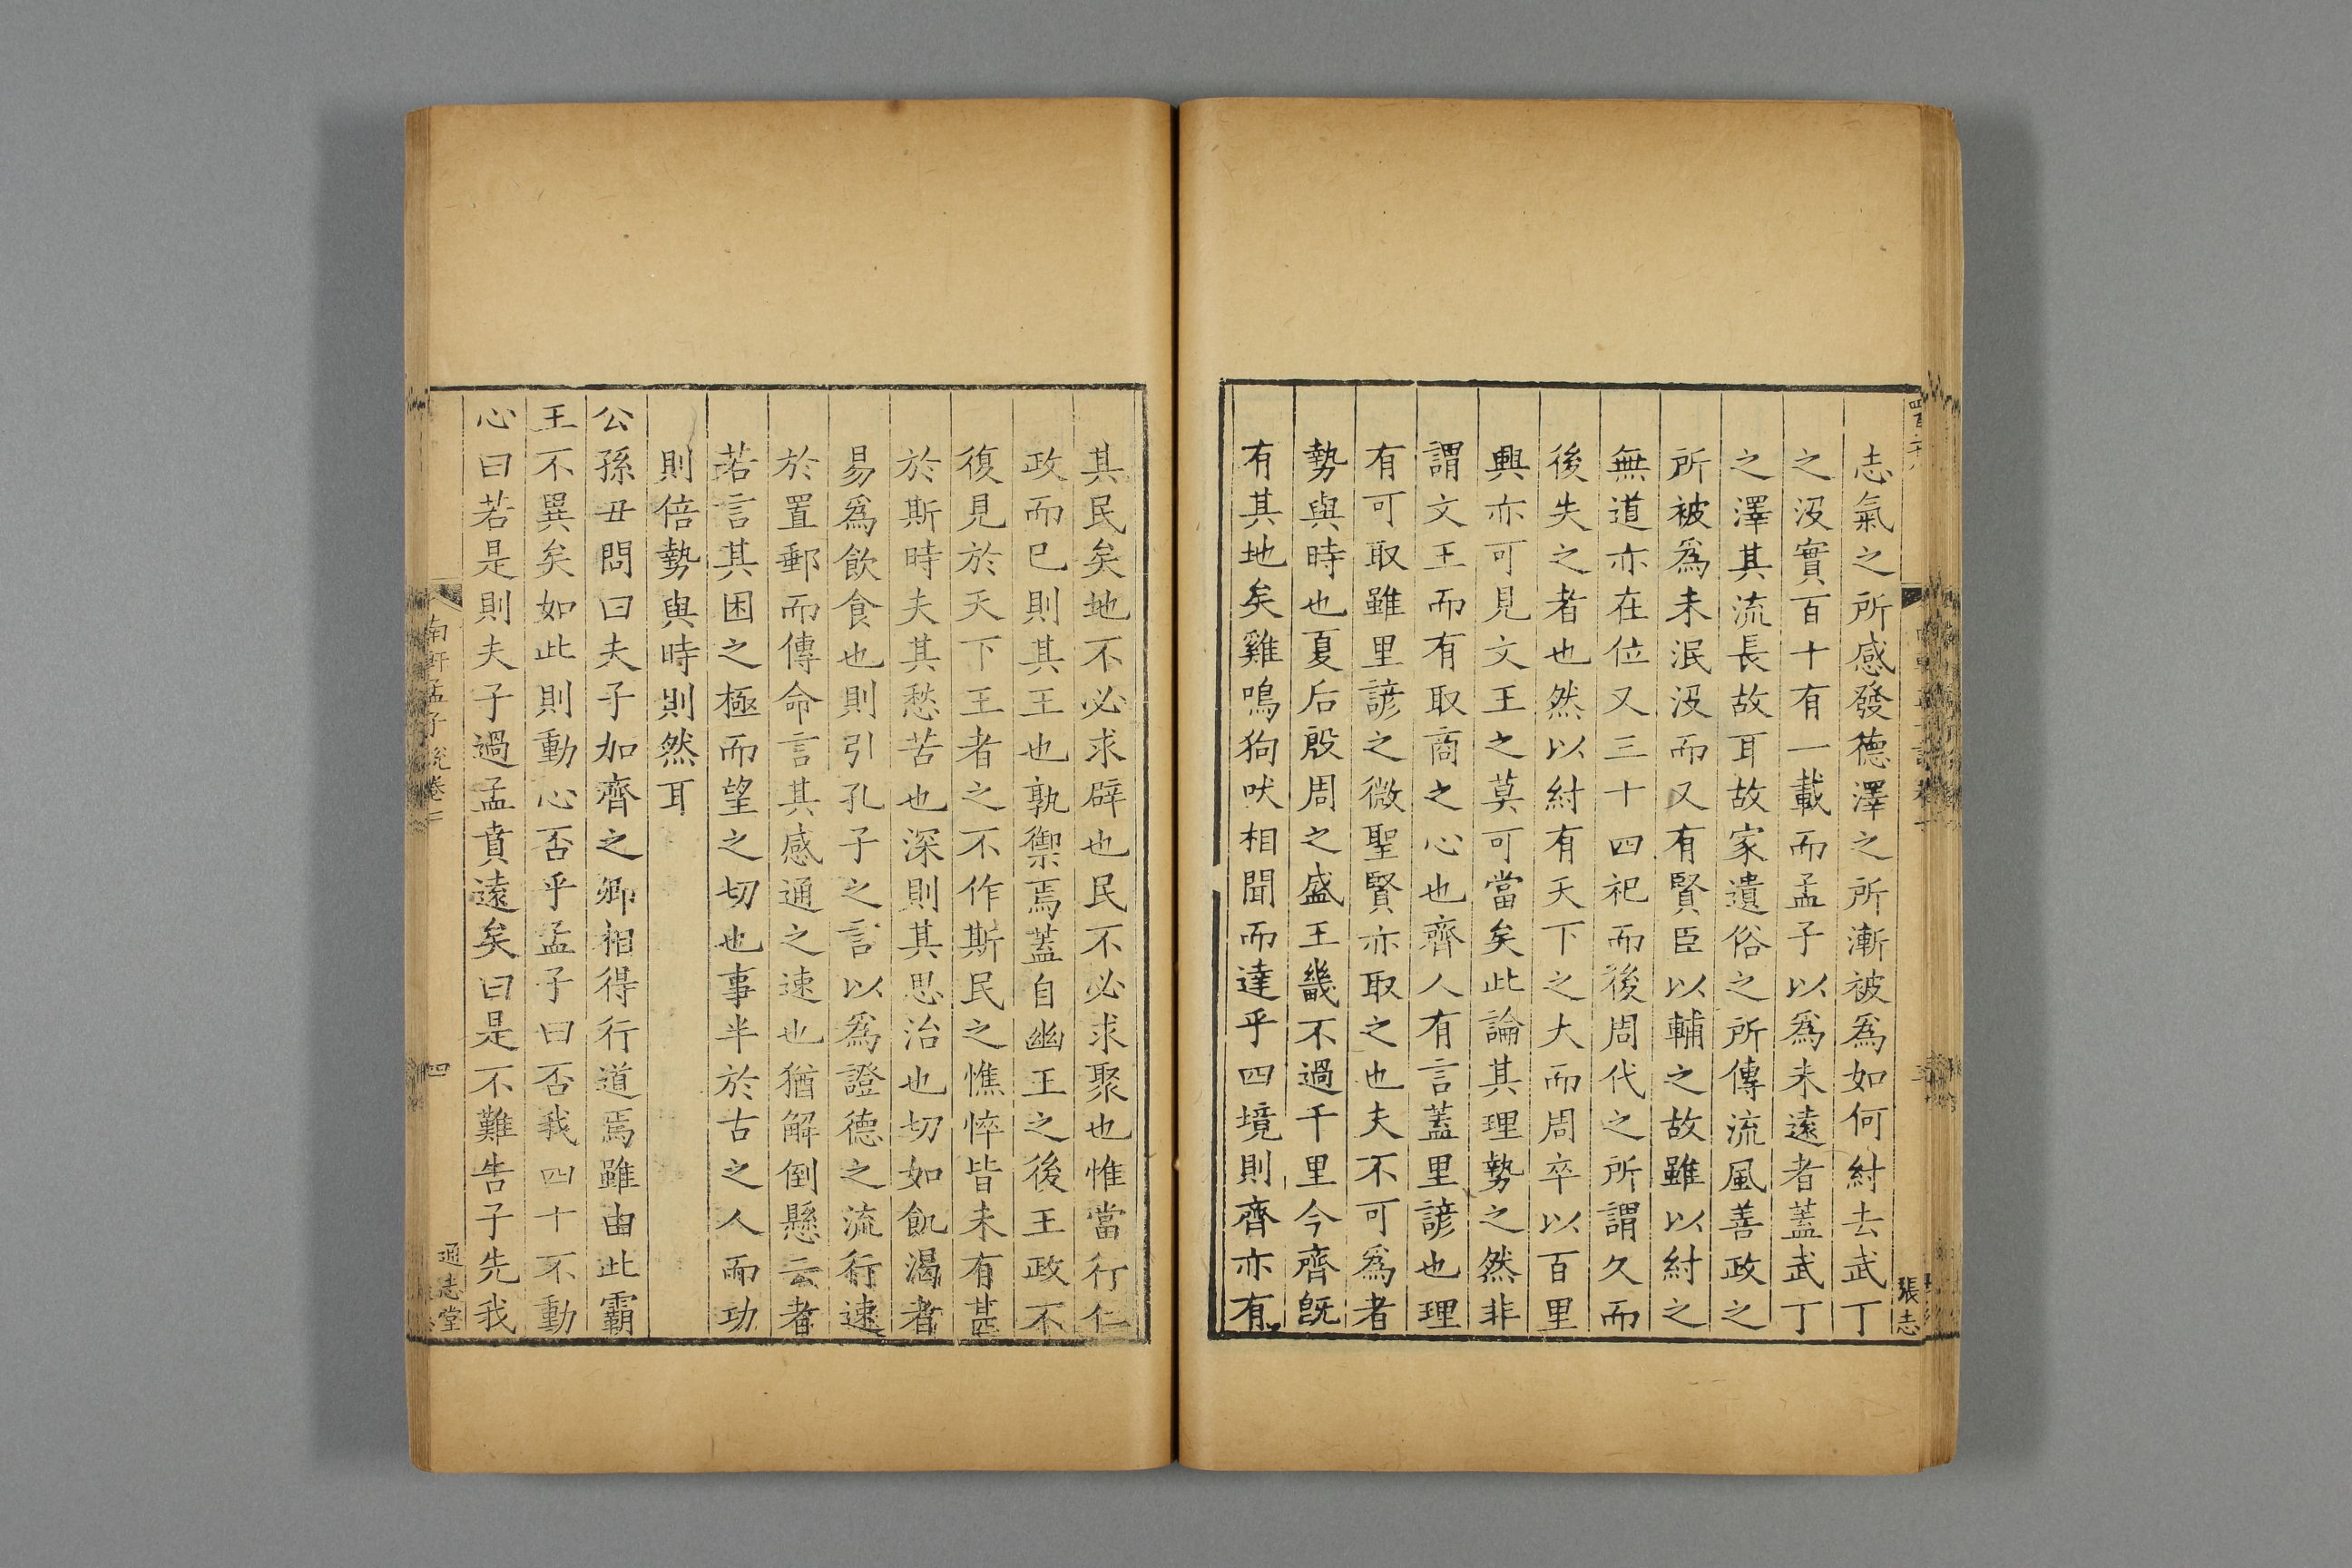 志氣之所感發德澤之所漸被爲如何紂去武丁
之沒實百十有一載而孟子以爲未遠者蓋武丁
之澤其流長故耳故家遺俗之所傳流風善政之
所被爲未泯沒而又有賢臣以輔之故雖以紂之
無道亦在位又三十四祀而後周代之所謂久而
後失之者也然以紂有天下之大而周卒以百里
興亦可見文王之莫可當矣此論其理勢之然非
謂文王而有取商之心也齊人有言蓋里諺也理
有可取雖里諺之微聖賢亦取之也夫不可爲者
勢與時也夏后殷周之盛王畿不過千里今齊旣
有其地矣雞鳴狗吠相聞而達乎四境則齊亦有
張志
其民矣地不必求辟也民不必求聚也惟當行仁
政而已則其王也孰禦焉蓋自幽王之後王政不
復見於天下王者之不作斯民之憔悴皆未有甚
於斯時夫其愁苦也深則其思治也切如飢渴者
易爲飲食也則引孔子之言以爲證德之流行速
於置郵而傳命言其感通之速也猶解倒懸云者
若言其困之極而望之切也事半於古之人而功
則倍勢與時則然耳
公孫丑問曰夫子加齊之卿相得行道焉雖由此霸
王不異矣如此則動心否乎孟子曰否我四十不動
心曰若是則夫子過孟賁遠矣曰是不難告子先我
南軒孟子說卷二
四
通志堂